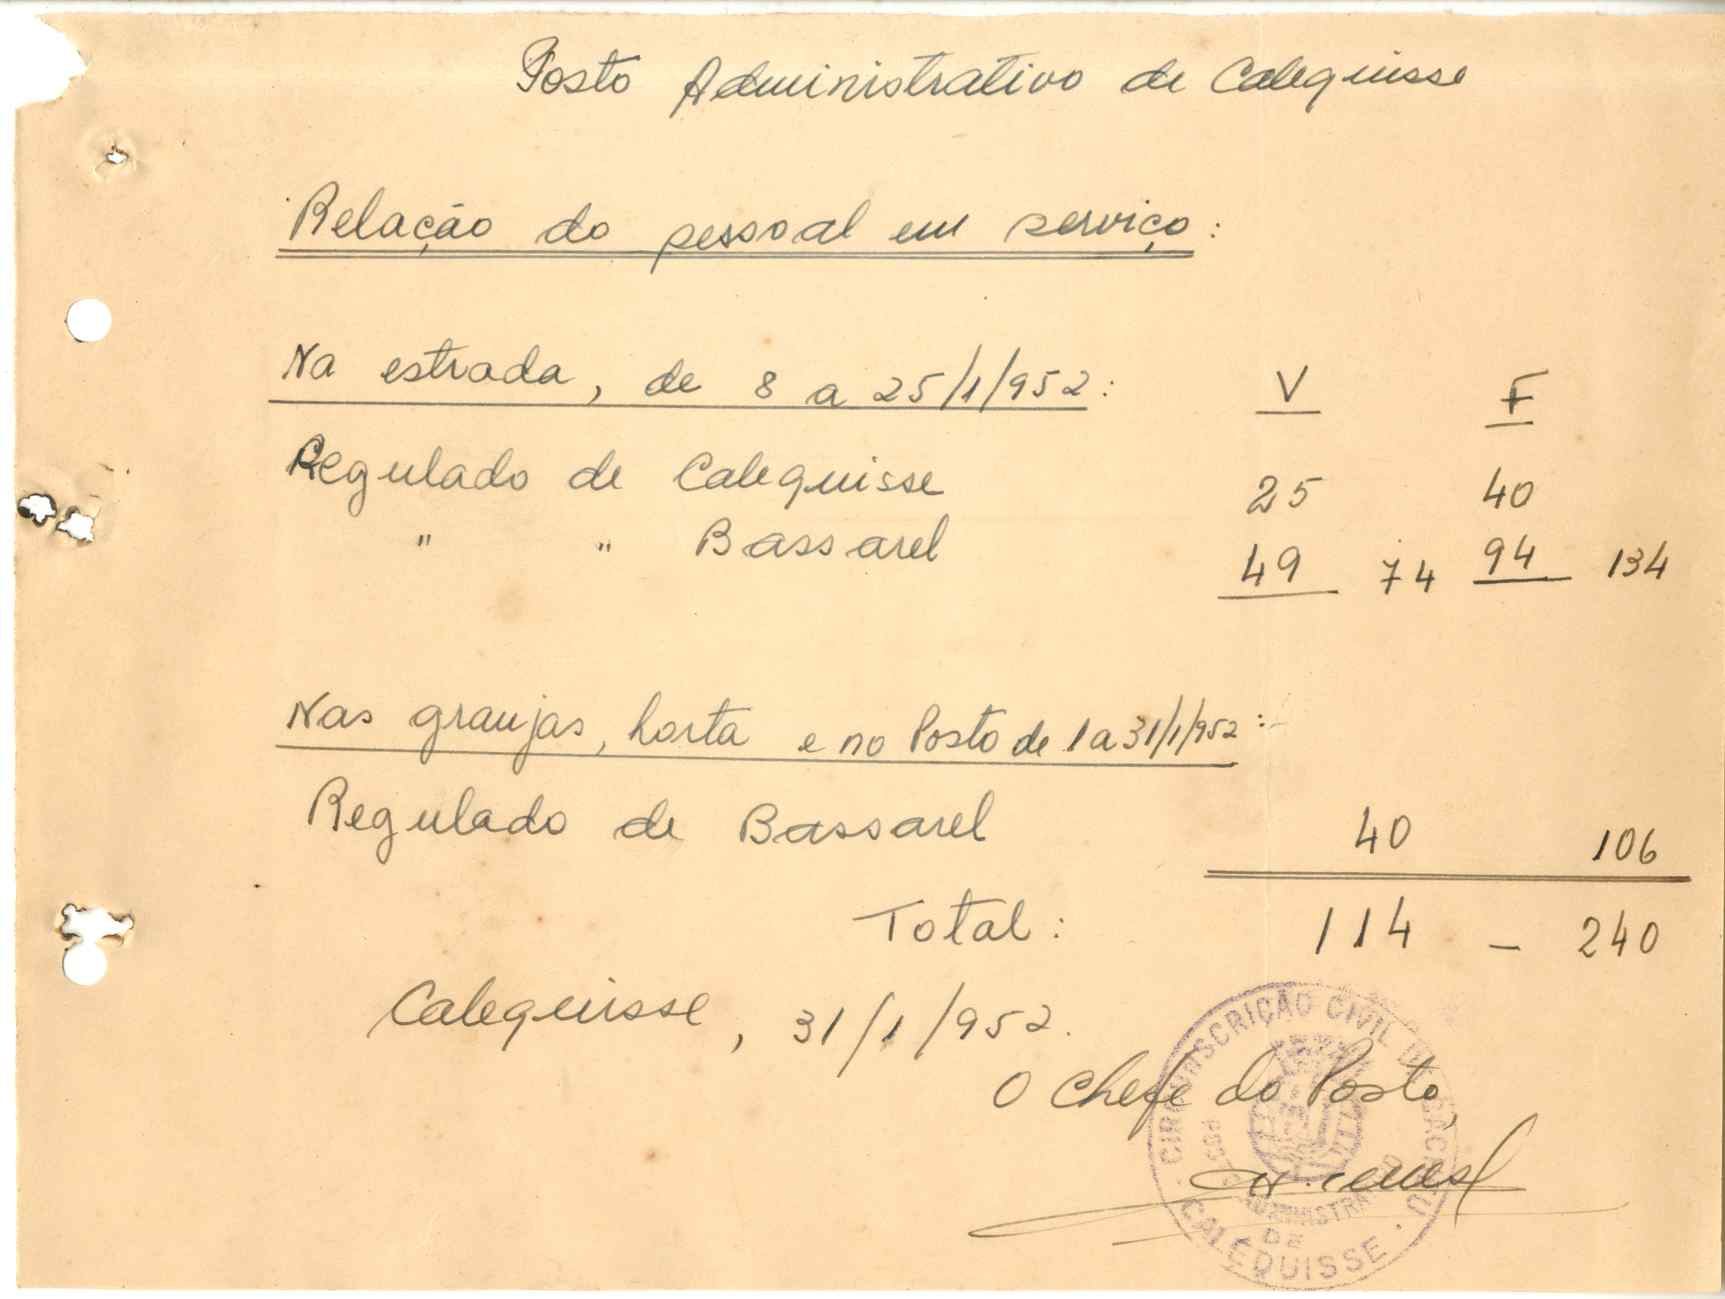 Posto Administrativo de Calequisse
Relação do pessoal em serviço:
Na estrada, de 8 a 25/1/952: V F
Regulado de Calequisse 25 40
" " Bassarel 49 74 94 134
Nas granjas, horta e no Posto de 1 a 31/1/952:-
Regulado de Bassarel 40 106
Total: 114 - 240
Calequisse, 31/1/952.
O Chefe do Posto,
CIRCUNSCRIÇÃO CIVIL DE CACHEU
POSTO ADMINISTRATIVO
DE
CALÉQUISSE